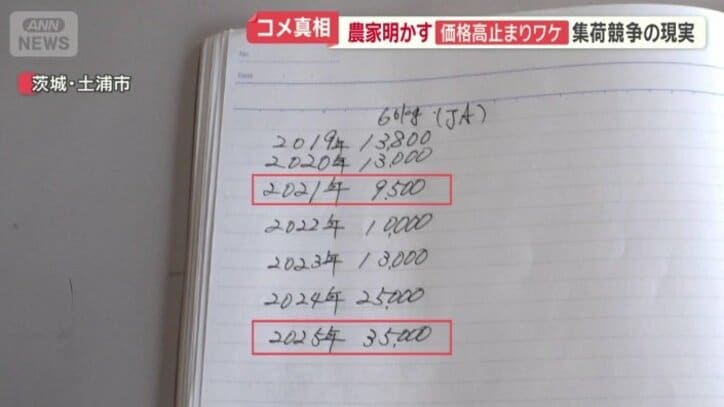 ANN
NEWS
コメ真相
農家明かす 価格高止まりワケ 集荷競争の現実
茨城・土浦市
No.
Date
60kg (JA)
2019年 13,800
2020年 13,000
2021年 9,500
2022年 10,000
2023年 13,000
2024年 25,000
2025年 35,000